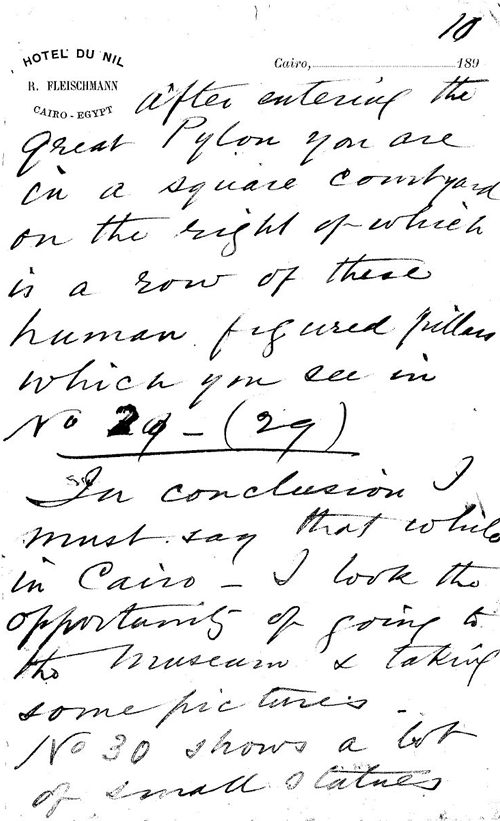 10
HOTEL DU NIL
R. FLEISCHMANN
CAIRO - EGYPT
Cairo, 189
after entering the
great Pylon you are
in a square courtyard
on the right of which
is a row of these
human figured pillars
which you see in
No 29 - (29)
In conclusion I
must say that while
in Cairo - I took the
opportunity of going to
the Museum & taking
some pictures -
No 30 shows a lot
of small statues